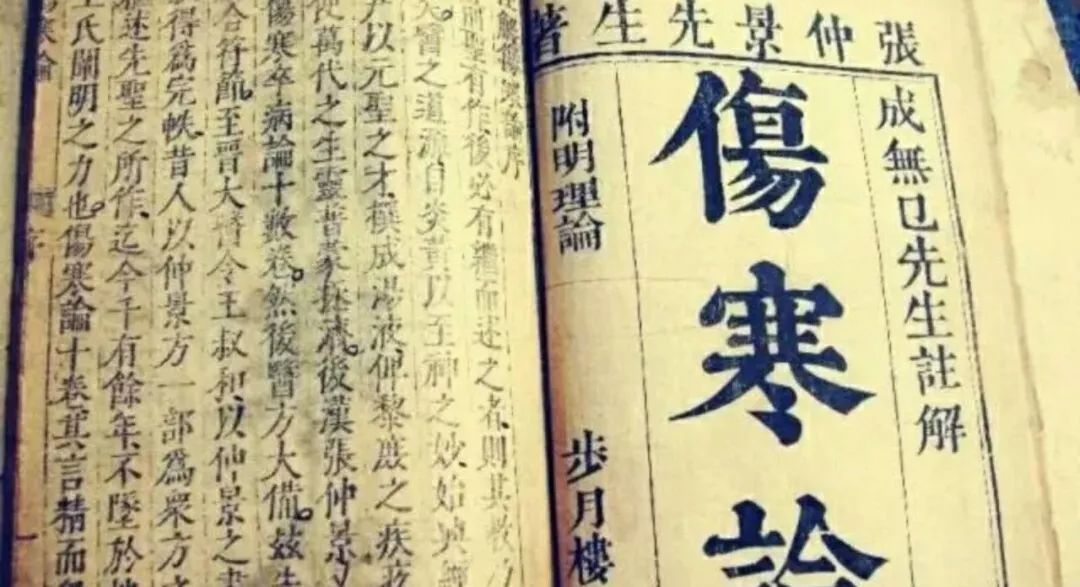 張仲景先生著
成無已先生註解
傷寒論
附明理論
步月樓
解傷寒論序
前聖有作後必有繼而述之者則其教
醫之道源自炎黃以至神之妙始興
尹以元聖之才撰成湯液俾黎庶之疾疚
使萬代之生靈普蒙拯濟。後漢張仲景
傷寒卒病論十數卷。然後醫方大備。茲先
合符節。至晉大醫令王叔和以仲景之書
得為完帙昔人以仲景方一部為眾方之
述先聖之所作。迄今千有餘年。不墜於地
王氏闡明之力也。傷寒論十卷其言精而
寒論